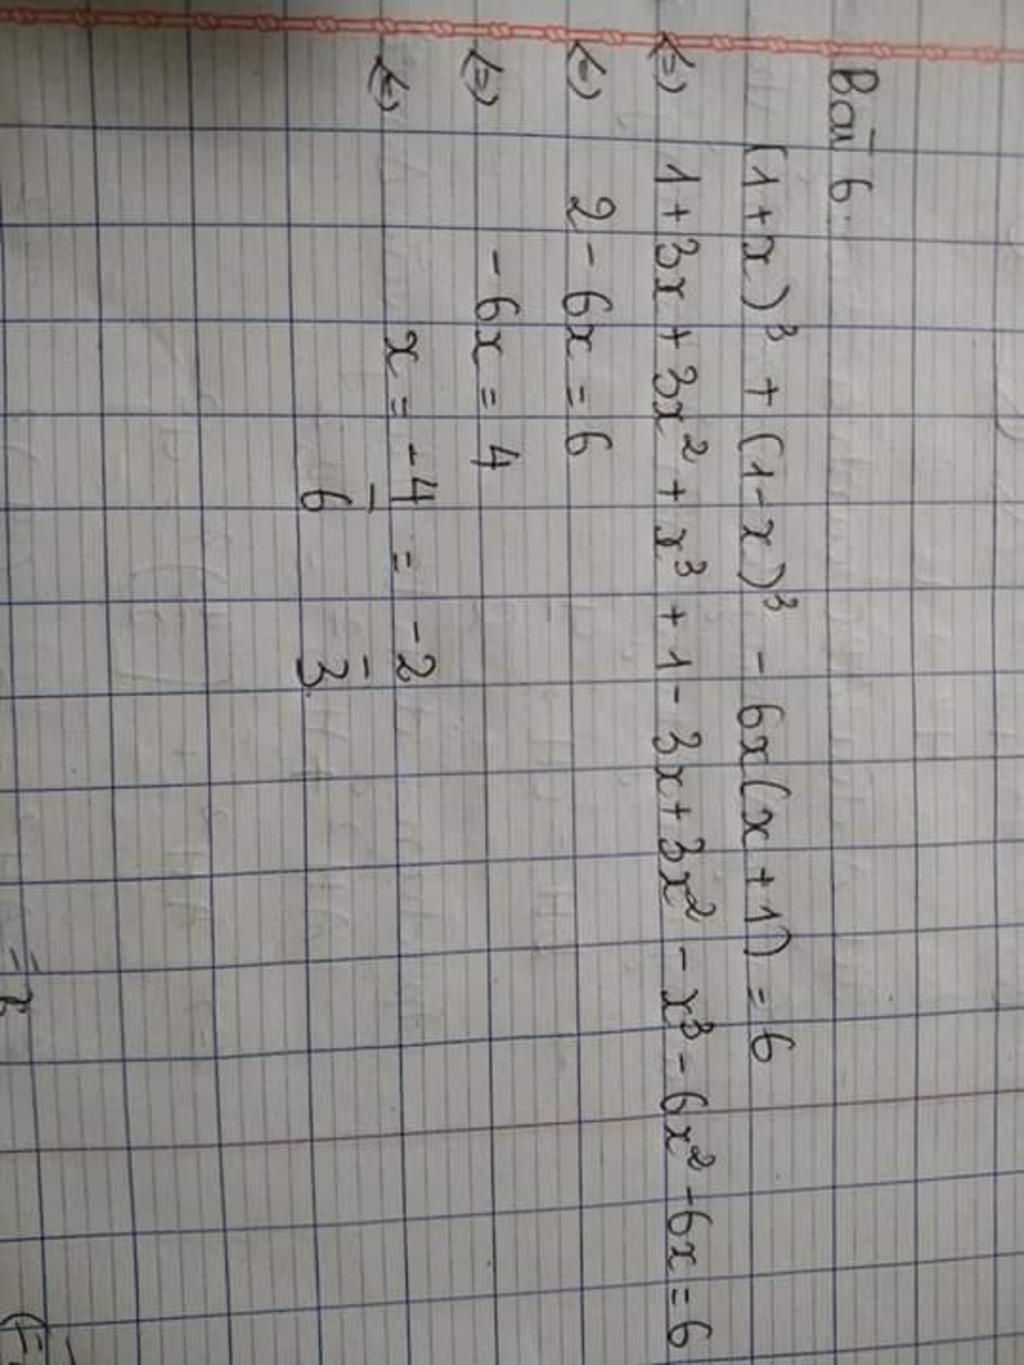 Bài 6:
(1+x)³ + (1-x)³ - 6x(x+1) = 6
<=> 1+3x+3x²+x³+1-3x+3x²-x³-6x²-6x=6
<=> 2-6x=6
<=> -6x=4
<=> x = -4/6 = -2/3